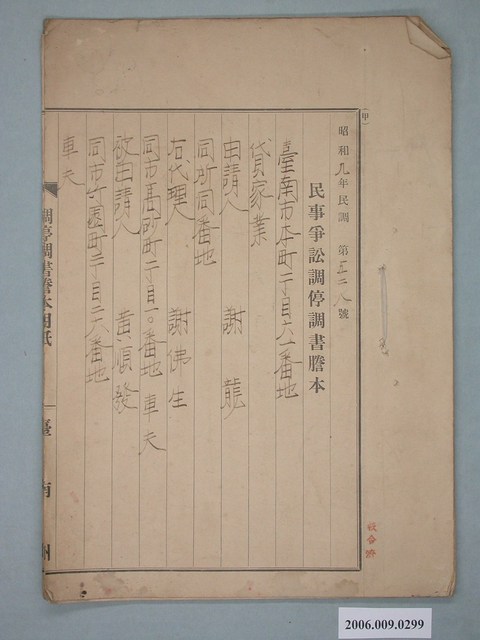 甲
昭和九年民調第五二八號
民事爭訟調停調書謄本
臺南市本町二丁目六一番地
貸家業
申請人 謝龍
同所同番地
右代理人 謝佛生
同市高砂町二丁目一〇番地 車夫
被申請人 黃順發
同市竹園町二丁目二六番地
車夫
調停調書謄本用紙
臺南州
2006.009.0299